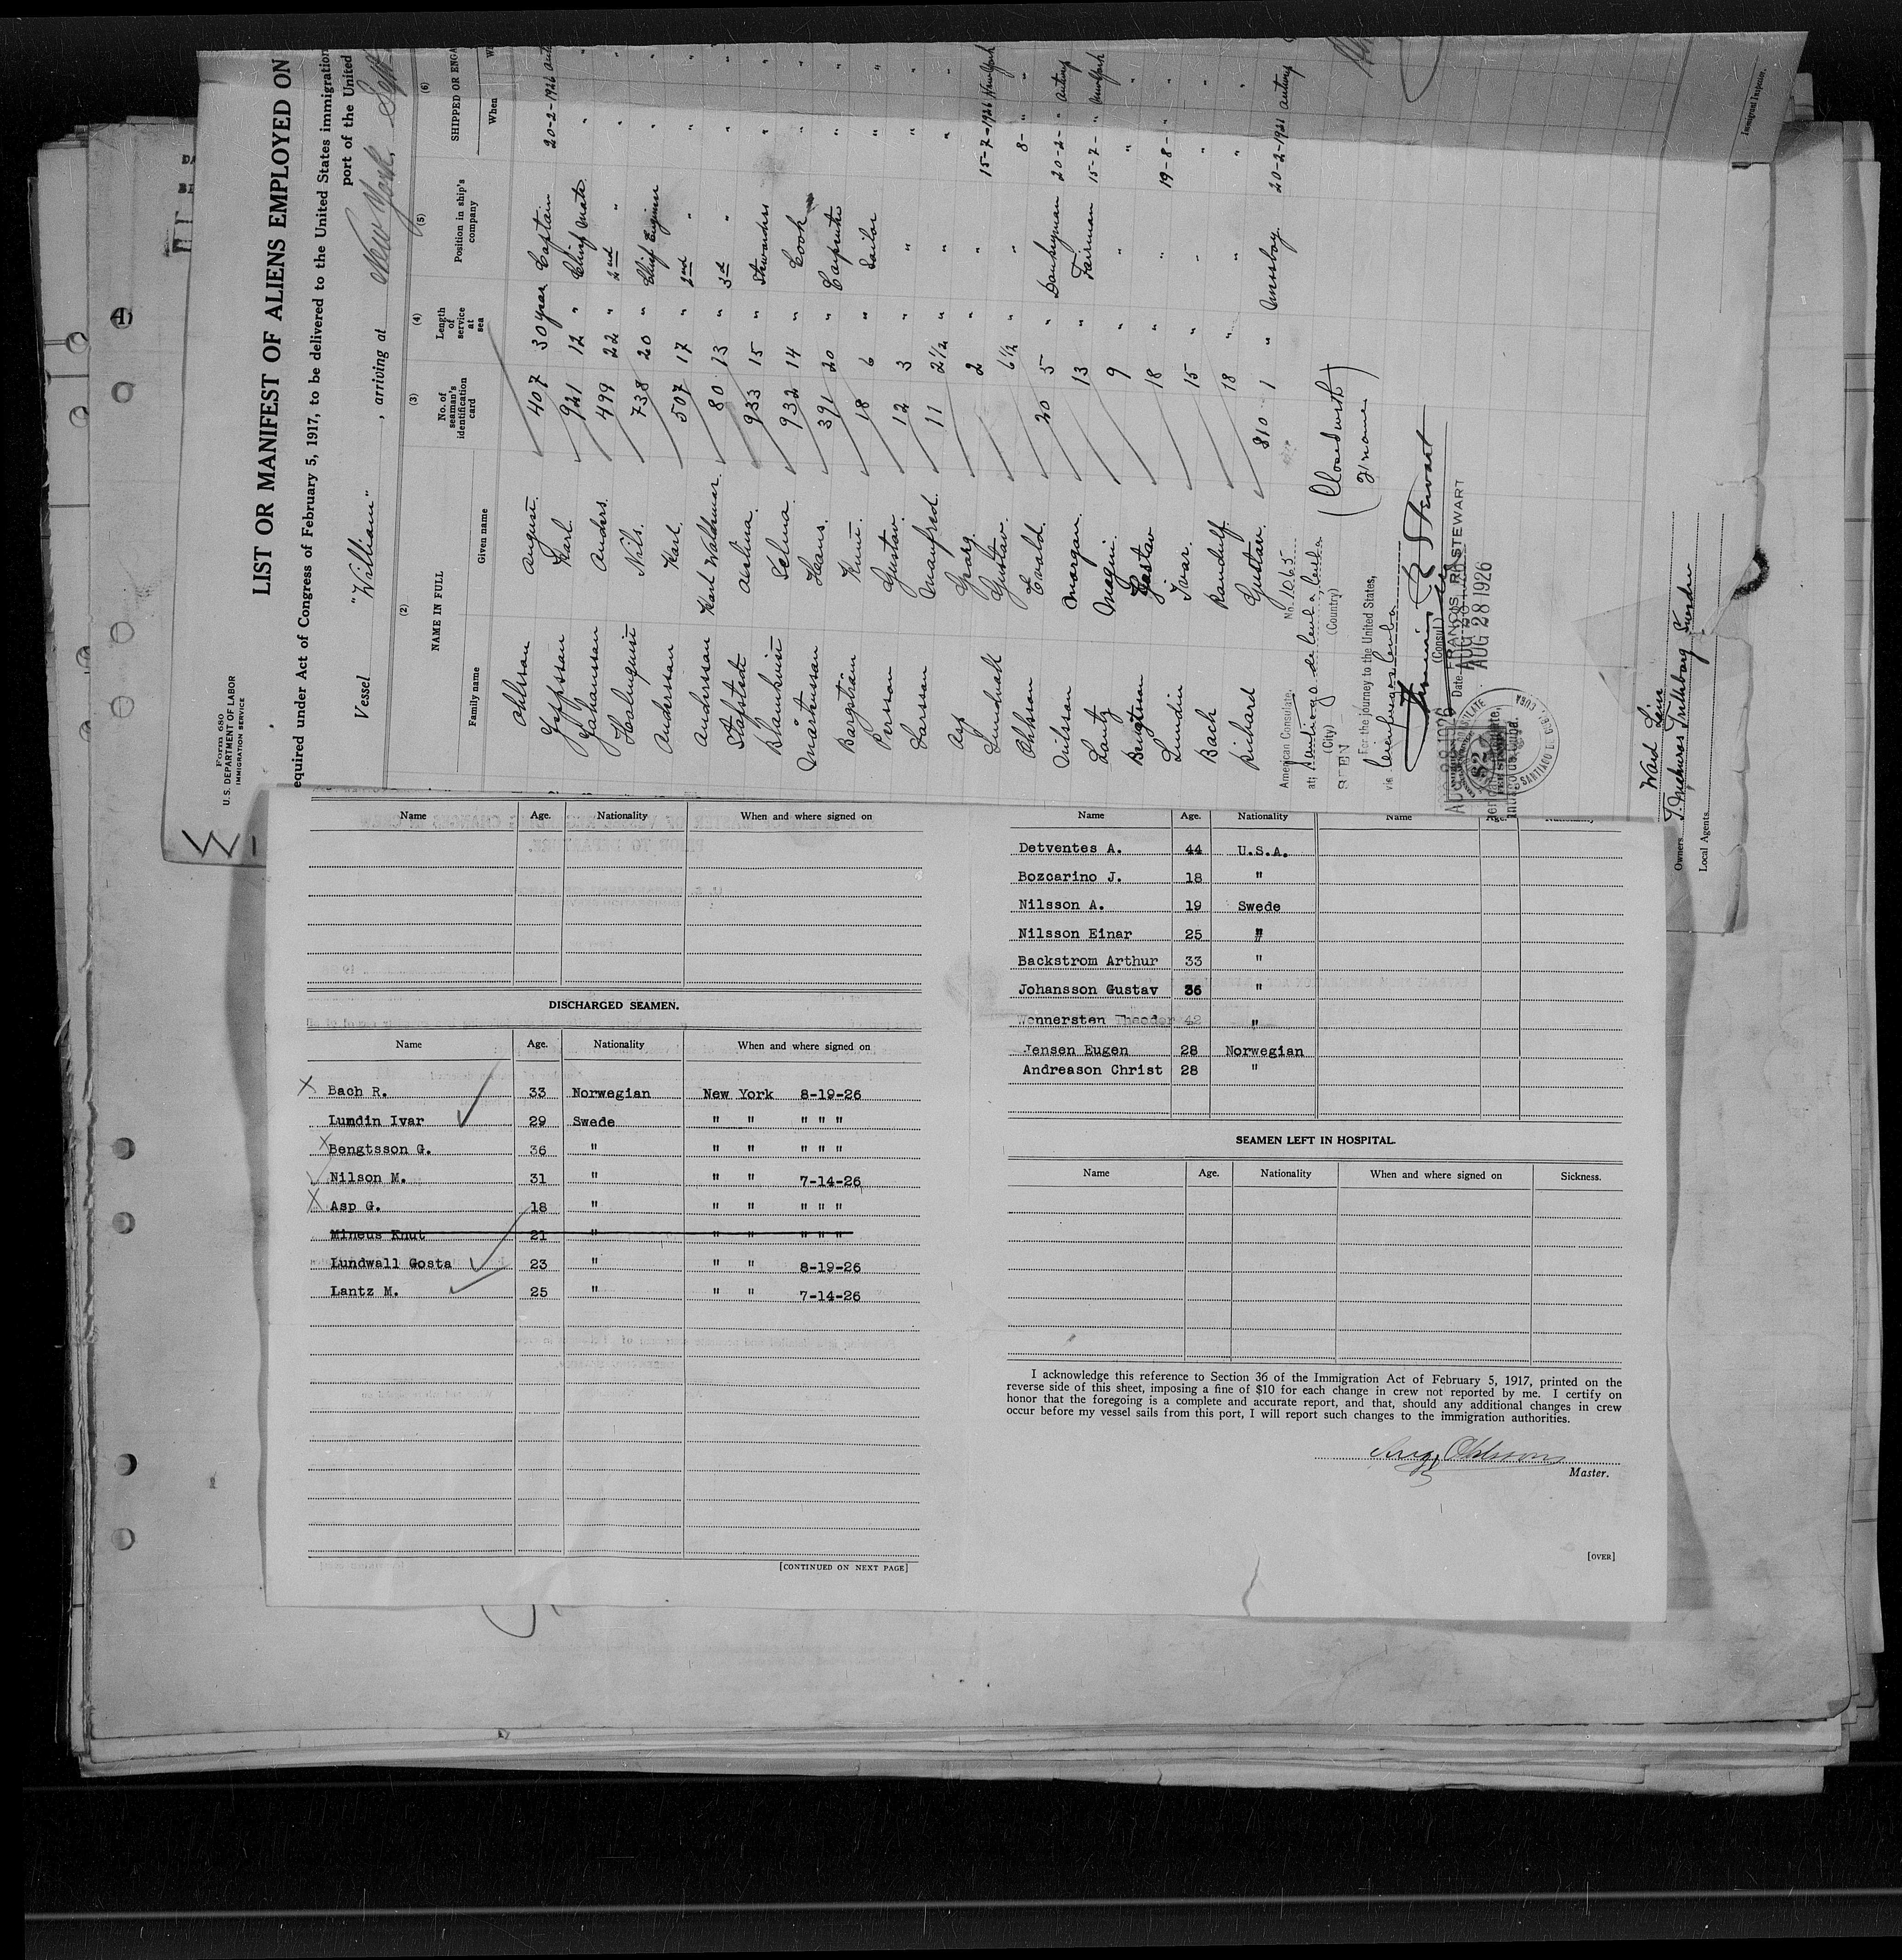 Form 680
U. S. DEPARTMENT OF LABOR
IMMIGRATION SERVICE
LIST OR MANIFEST OF ALIENS EMPLOYED ON
equired under Act of Congress of February 5, 1917, to be delivered to the United States immigration
port of the United
Vessel "William" , arriving at New York, Sept
(2) (3) (4) (5) (6)
NAME IN FULL No. of seaman's identification card Length of service at sea Position in ship's company SHIPPED OR ENGA
Family name Given name When W
Ohlsson August. 407 30 year Captain 20-2-1926
Jeppsson Karl. 921 12 " Chief Mate "
Johansson Anders. 499 22 " 2nd " "
Holmquist Nils. 738 20 " Chief Engineer "
Andersson Karl. 507 17 " 2nd " "
Andersson Karl Waldemar. 80 13 " 3d " "
933 15 " Stewardess "
Selma. 932 14 " Cook "
Mårtensson Hans. 391 20 " "
Bergström Knut. 18 6 " Sailor "
Persson Gustav. 12 3 " " "
Larsson Manfred. 11 2½ " " "
Asp Georg. 2 " " 15-7-1926 New York
Lundvall Gustav. 6½ " " 8- " "
Ohlsson Evald. 20 5 " Donkeyman 20-2- "
Nilsson Morgan. 13 " Fairman 15-7- " New York
Lantz Magni. 9 " " " "
Bengtsson Gustav 18 " " 19-8- " "
Lundin Ivar. 15 " " " "
Bach Randulf. 18 " " " "
Rickard Gustav. 810 1 " Messboy. 20-2-1921
American Consulate, No. 1065
at; Santiago de Cuba, Cuba
(City) (Country)
SEEN
For the journey to the United States,
via Cienfuegos Cuba
Francis R Stewart
(Consul)
FRANCIS R. STEWART
Date AUG 28 1926
AUG 28 1926
SANTIAGO DE CUBA, CUBA
Immigrant Inspector.
Owners
Local Agents
Ward Line
Name Age. Nationality When and where signed on
DISCHARGED SEAMEN.
Name Age. Nationality When and where signed on
Bach R. 33 Norwegian New York 8-19-26
Lundin Ivar 29 Swede " " " " "
Bengtsson G. 36 " " " " " "
Nilson M. 31 " " " 7-14-26
Asp G. 18 " " " " " "
Mineus Knut 21 " " " " " "
Lundwall Gosta 23 " " " 8-19-26
Lantz M. 25 " " " 7-14-26
[CONTINUED ON NEXT PAGE]
Name Age. Nationality Name Age. Nationality
Detventes A. 44 U.S.A.
Bozcarino J. 18 "
Nilsson A. 19 Swede
Nilsson Einar 25 "
Backstrom Arthur 33 "
Johansson Gustav 36 "
Wennersten Theodor 42 "
Jensen Eugen 28 Norwegian
Andreason Christ 28 "
SEAMEN LEFT IN HOSPITAL.
Name Age. Nationality When and where signed on Sickness.
I acknowledge this reference to Section 36 of the Immigration Act of February 5, 1917, printed on the
reverse side of this sheet, imposing a fine of $10 for each change in crew not reported by me. I certify on
honor that the foregoing is a complete and accurate report, and that, should any additional changes in crew
occur before my vessel sails from this port, I will report such changes to the immigration authorities.
Aug. Ohlsson
Master.
[OVER]